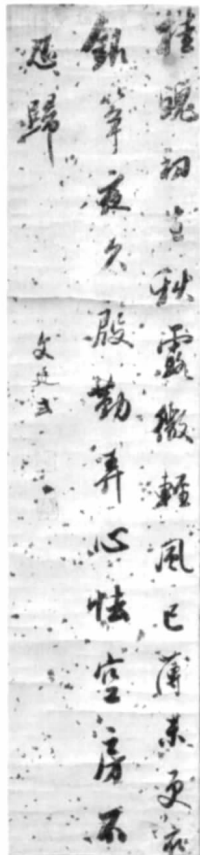 桂魄初生秋露微輕風已薄未更衣
銀箏夜久殷勤弄心怯空房不
忍歸
文廷式